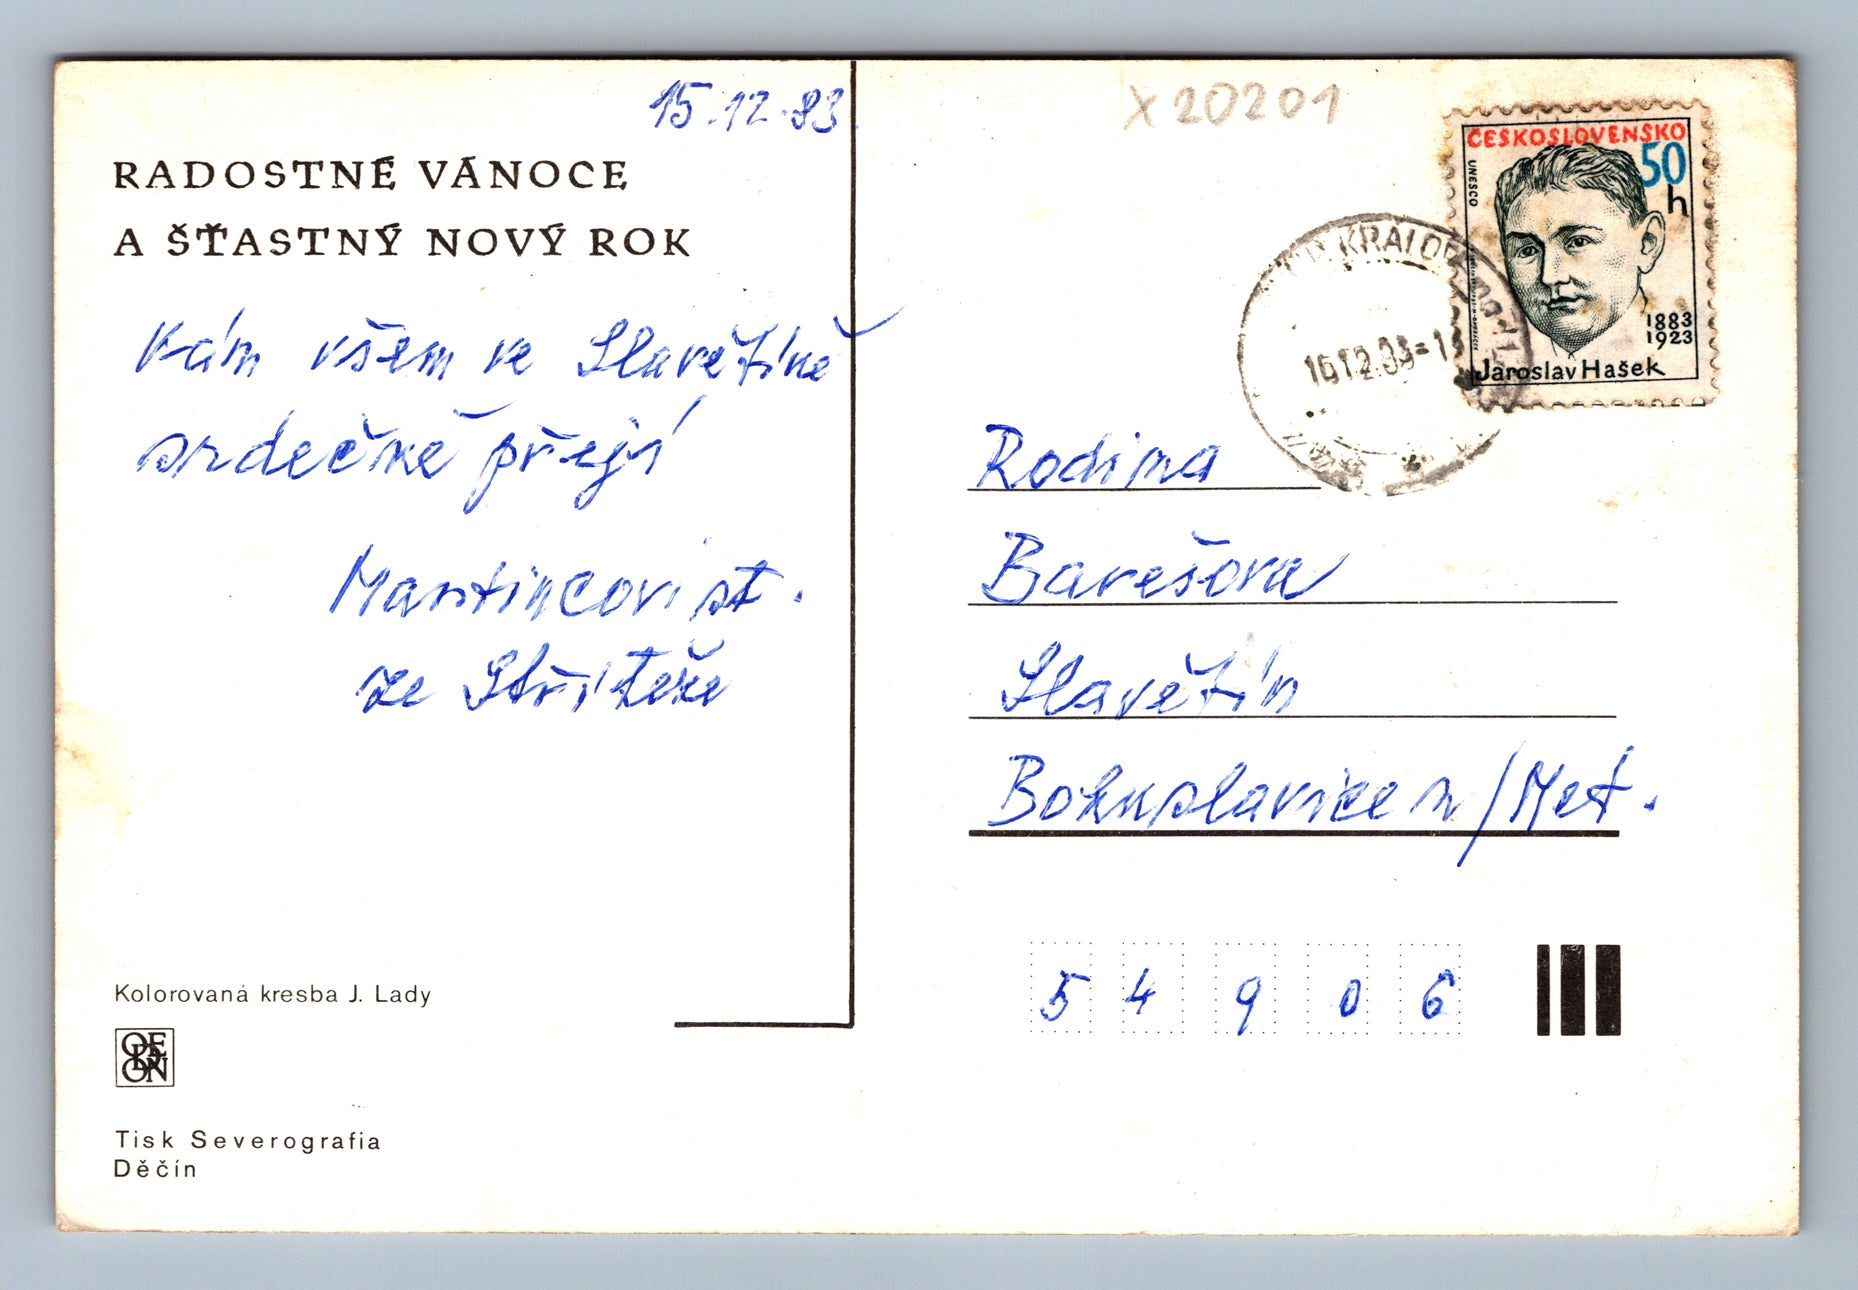 15.12.83
RADOSTNÉ VÁNOCE
A ŠŤASTNÝ NOVÝ ROK
Vám všem ve Slavětíně
srdečně přejí
Martincovi st.
ze Stříteže
Kolorovaná kresba J. Lady
ODEON
Tisk Severografia
Děčín
X20201
ČESKOSLOVENSKO
50
h
UNESCO
1883
1923
Jaroslav Hašek
16.12.83-1
Rodina
Barešova
Slavětín
Bohuslavice n/Met.
5 4 9 0 6